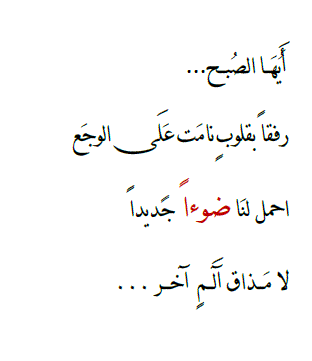 أَيُّهَا الصُبح...
رفقاً بقلوبٍ نامَت عَلَى الوجَع
احمل لنَا ضوءاً جَديداً
لا مَذاق آلَمٍ آخر ...